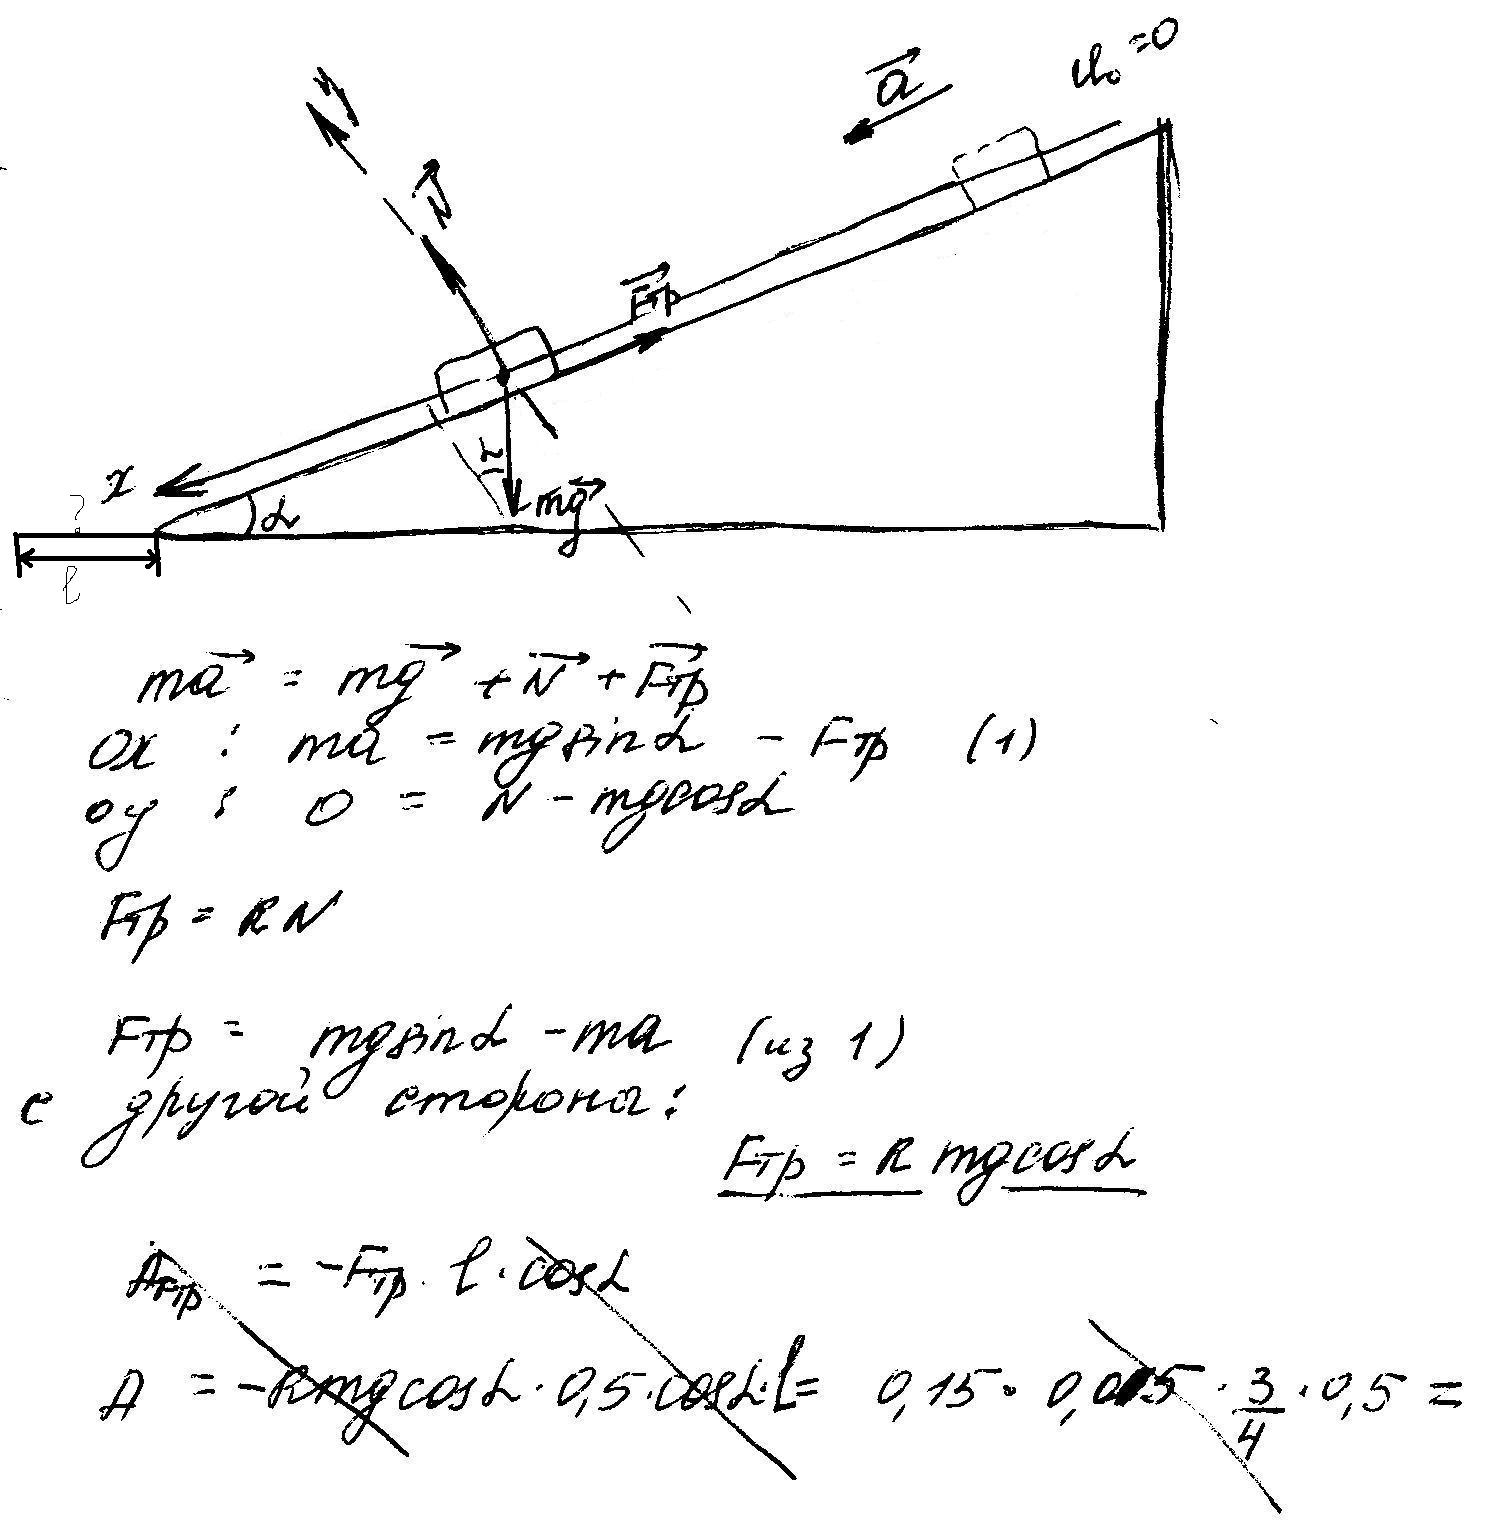 υ₀ = 0
a⃗
y
N⃗
F⃗тр
x
α
mg⃗
?
l
ma⃗ = mg⃗ + N⃗ + F⃗тр
Ox : ma = mg sin α - Fтр (1)
oy : 0 = N - mg cos α
Fтр = RN
Fтр = mg sin α - ma (из 1)
с другой стороны:
Fтр = R mg cos α
AFтр = -Fтр · l · cos α
A = -R mg cos α · 0,5 · cos α · l = 0,15 · · 3/4 · 0,5 =